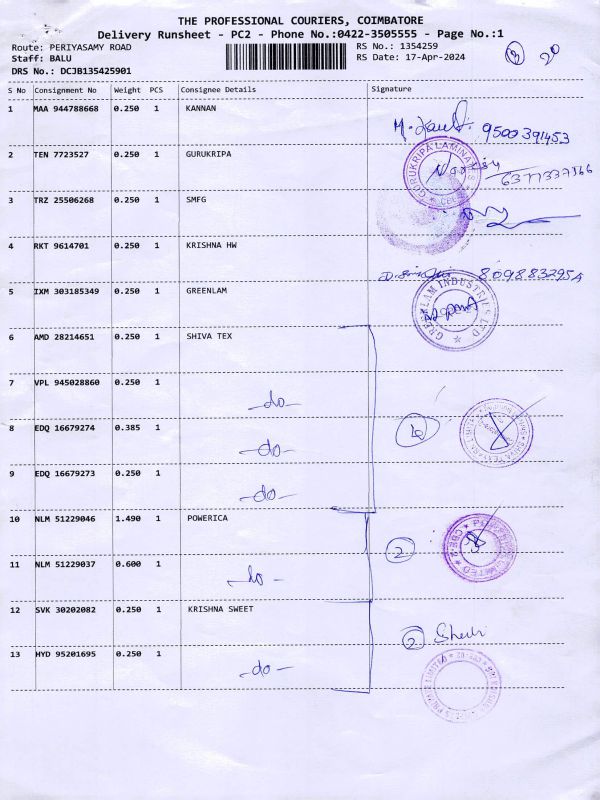 THE PROFESSIONAL COURIERS, COIMBATORE
Delivery Runsheet - PC2 - Phone No.:0422-3505555 - Page No.:1
Route: PERIYASAMY ROAD RS No.: 1354259
Staff: BALU RS Date: 17-Apr-2024
DRS No.: DCJB135425901
13 20
S No Consignment No Weight PCS Consignee Details Signature
1 MAA 944788668 0.250 1 KANNAN
9500391453
2 TEN 7723527 0.250 1 GURUKRIPA
GURUKRIPA LAMINATES
3 TRZ 25506268 0.250 1 SMFG
4 RKT 9614701 0.250 1 KRISHNA HW
5 IXM 303185349 0.250 1 GREENLAM
GREENLAM INDUSTRIES LTD
6 AMD 28214651 0.250 1 SHIVA TEX
7 VPL 945028860 0.250 1
-do-
8 EDQ 16679274 0.385 1
-do-
9 EDQ 16679273 0.250 1
-do-
10 NLM 51229046 1.490 1 POWERICA
2
11 NLM 51229037 0.600 1
-do-
12 SVK 30202082 0.250 1 KRISHNA SWEET
2
13 HYD 95201695 0.250 1
-do-